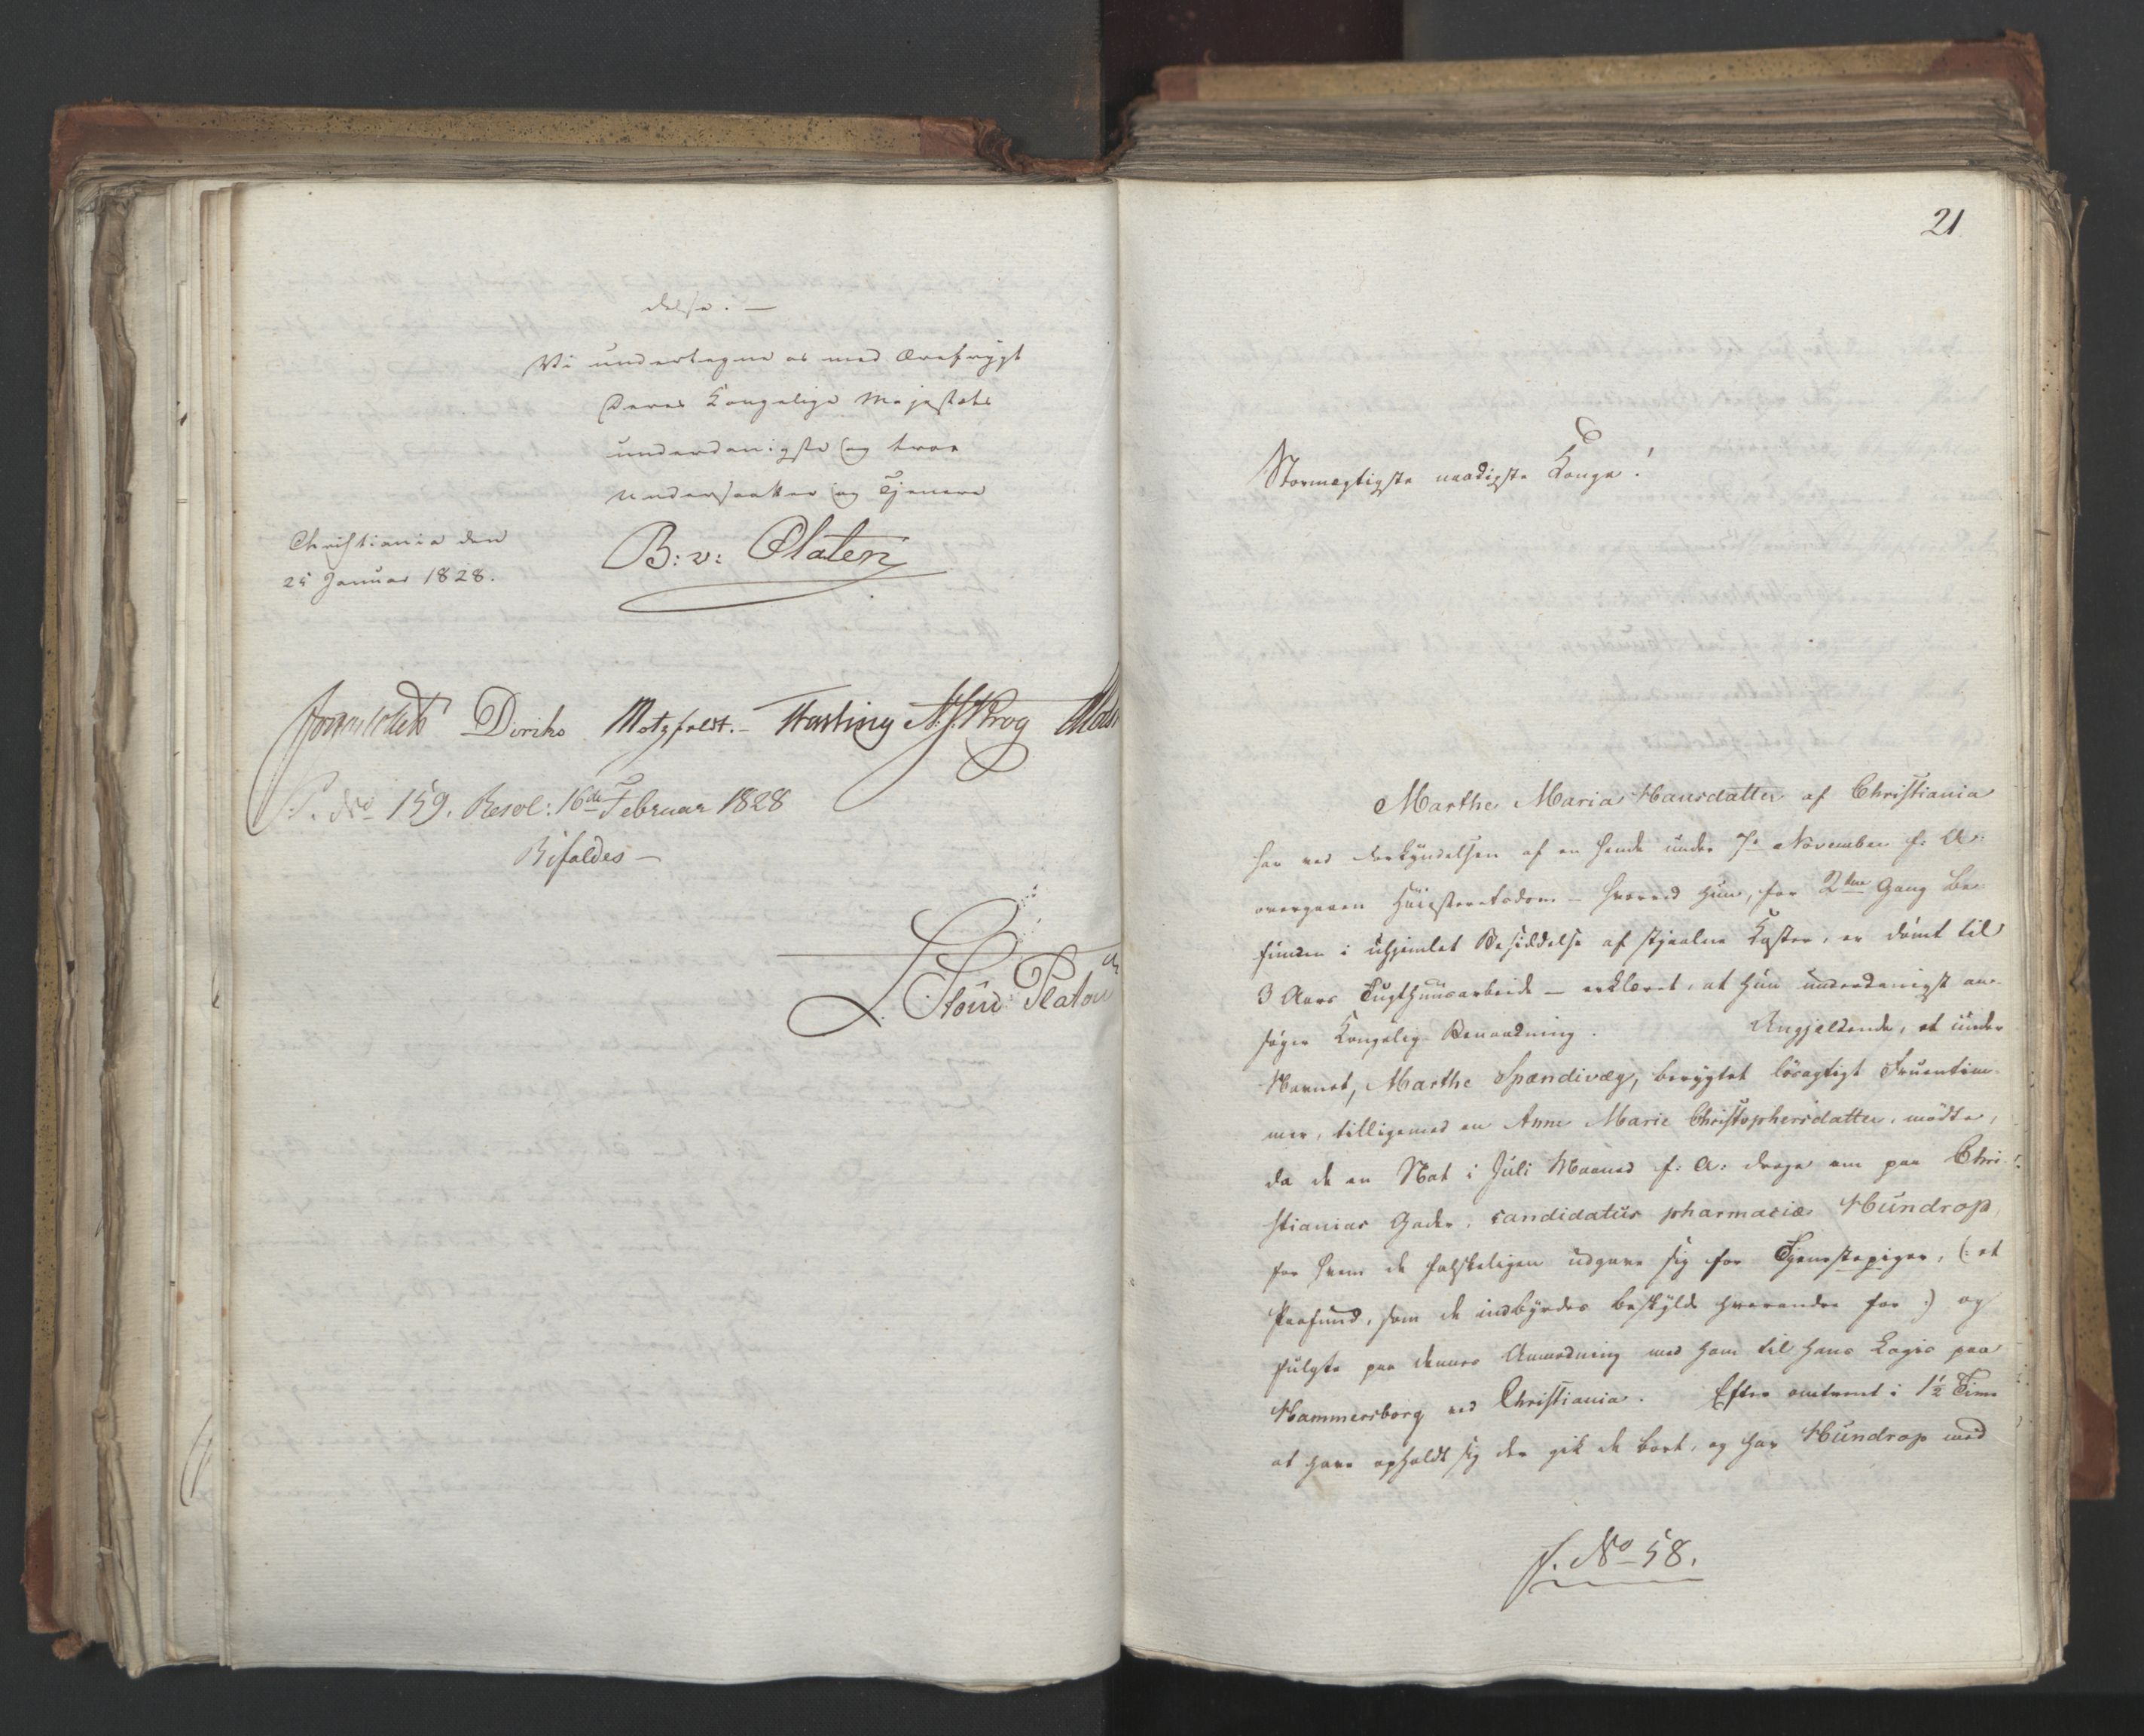 delse. —
Vi undertegne os med Ærefrygt
Deres Kongelige Majestæts
underdanigste og troe
Undersaatter og Tjenere
Christiania den
25 Januar 1828.
B: v: Platen
Diriks Motzfeldt. Fasting
P. No 159. Resol: 16de Februar 1828
Bifaldes —
Platou
21
Stormægtigste naadigste Konge!
Marthe Maria Hansdatter af Christiania
har ved Forkyndelsen af en hende under 7de November f: A:
overgaaen Høiesteretsdom — hvorved hun, for 2den Gang be-
funden i uhjemlet Besiddelse af stjaalne Koster, er dømt til
3 Aars Tugthuusarbeide — erklæret, at hun underdanigst an-
søger Kongelig Benaadning. Angjældende, et under
Navnet, Marthe Spændivæg, berygtet løsagtigt Fruentim-
mer, tilligemed en Anne Marie Christophersdatter, mødte,
da de en Nat i Juli Maaned f: A: droge om paa Chri-
stianias Gader, candidatus pharmaciæ Hundrop,
for hvem de falskeligen udgave sig for Tjenestepiger, (: et
Paafund, som de indbyrdes beskylde hverandre for :) og
fulgte paa dennes Anmodning med ham til hans Logis paa
Hammersborg ved Christiania. Efter omtrent i 1½ Time
at have opholdt sig der gik de bort, og har Hundrop med
J. No 58.